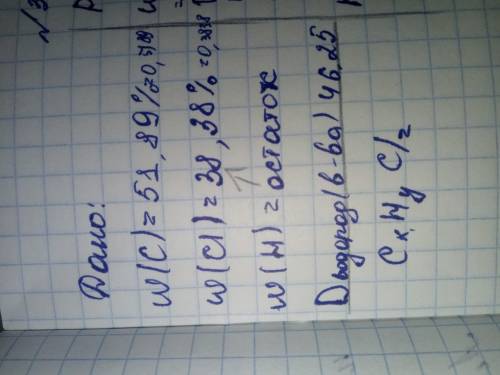 №3
Дано:
W(C) = 51,89% = 0,5189
W(Cl) = 38,38% = 0,3838
W(H) = остаток
Dводород(в-ва) 46,25
CxHyClz